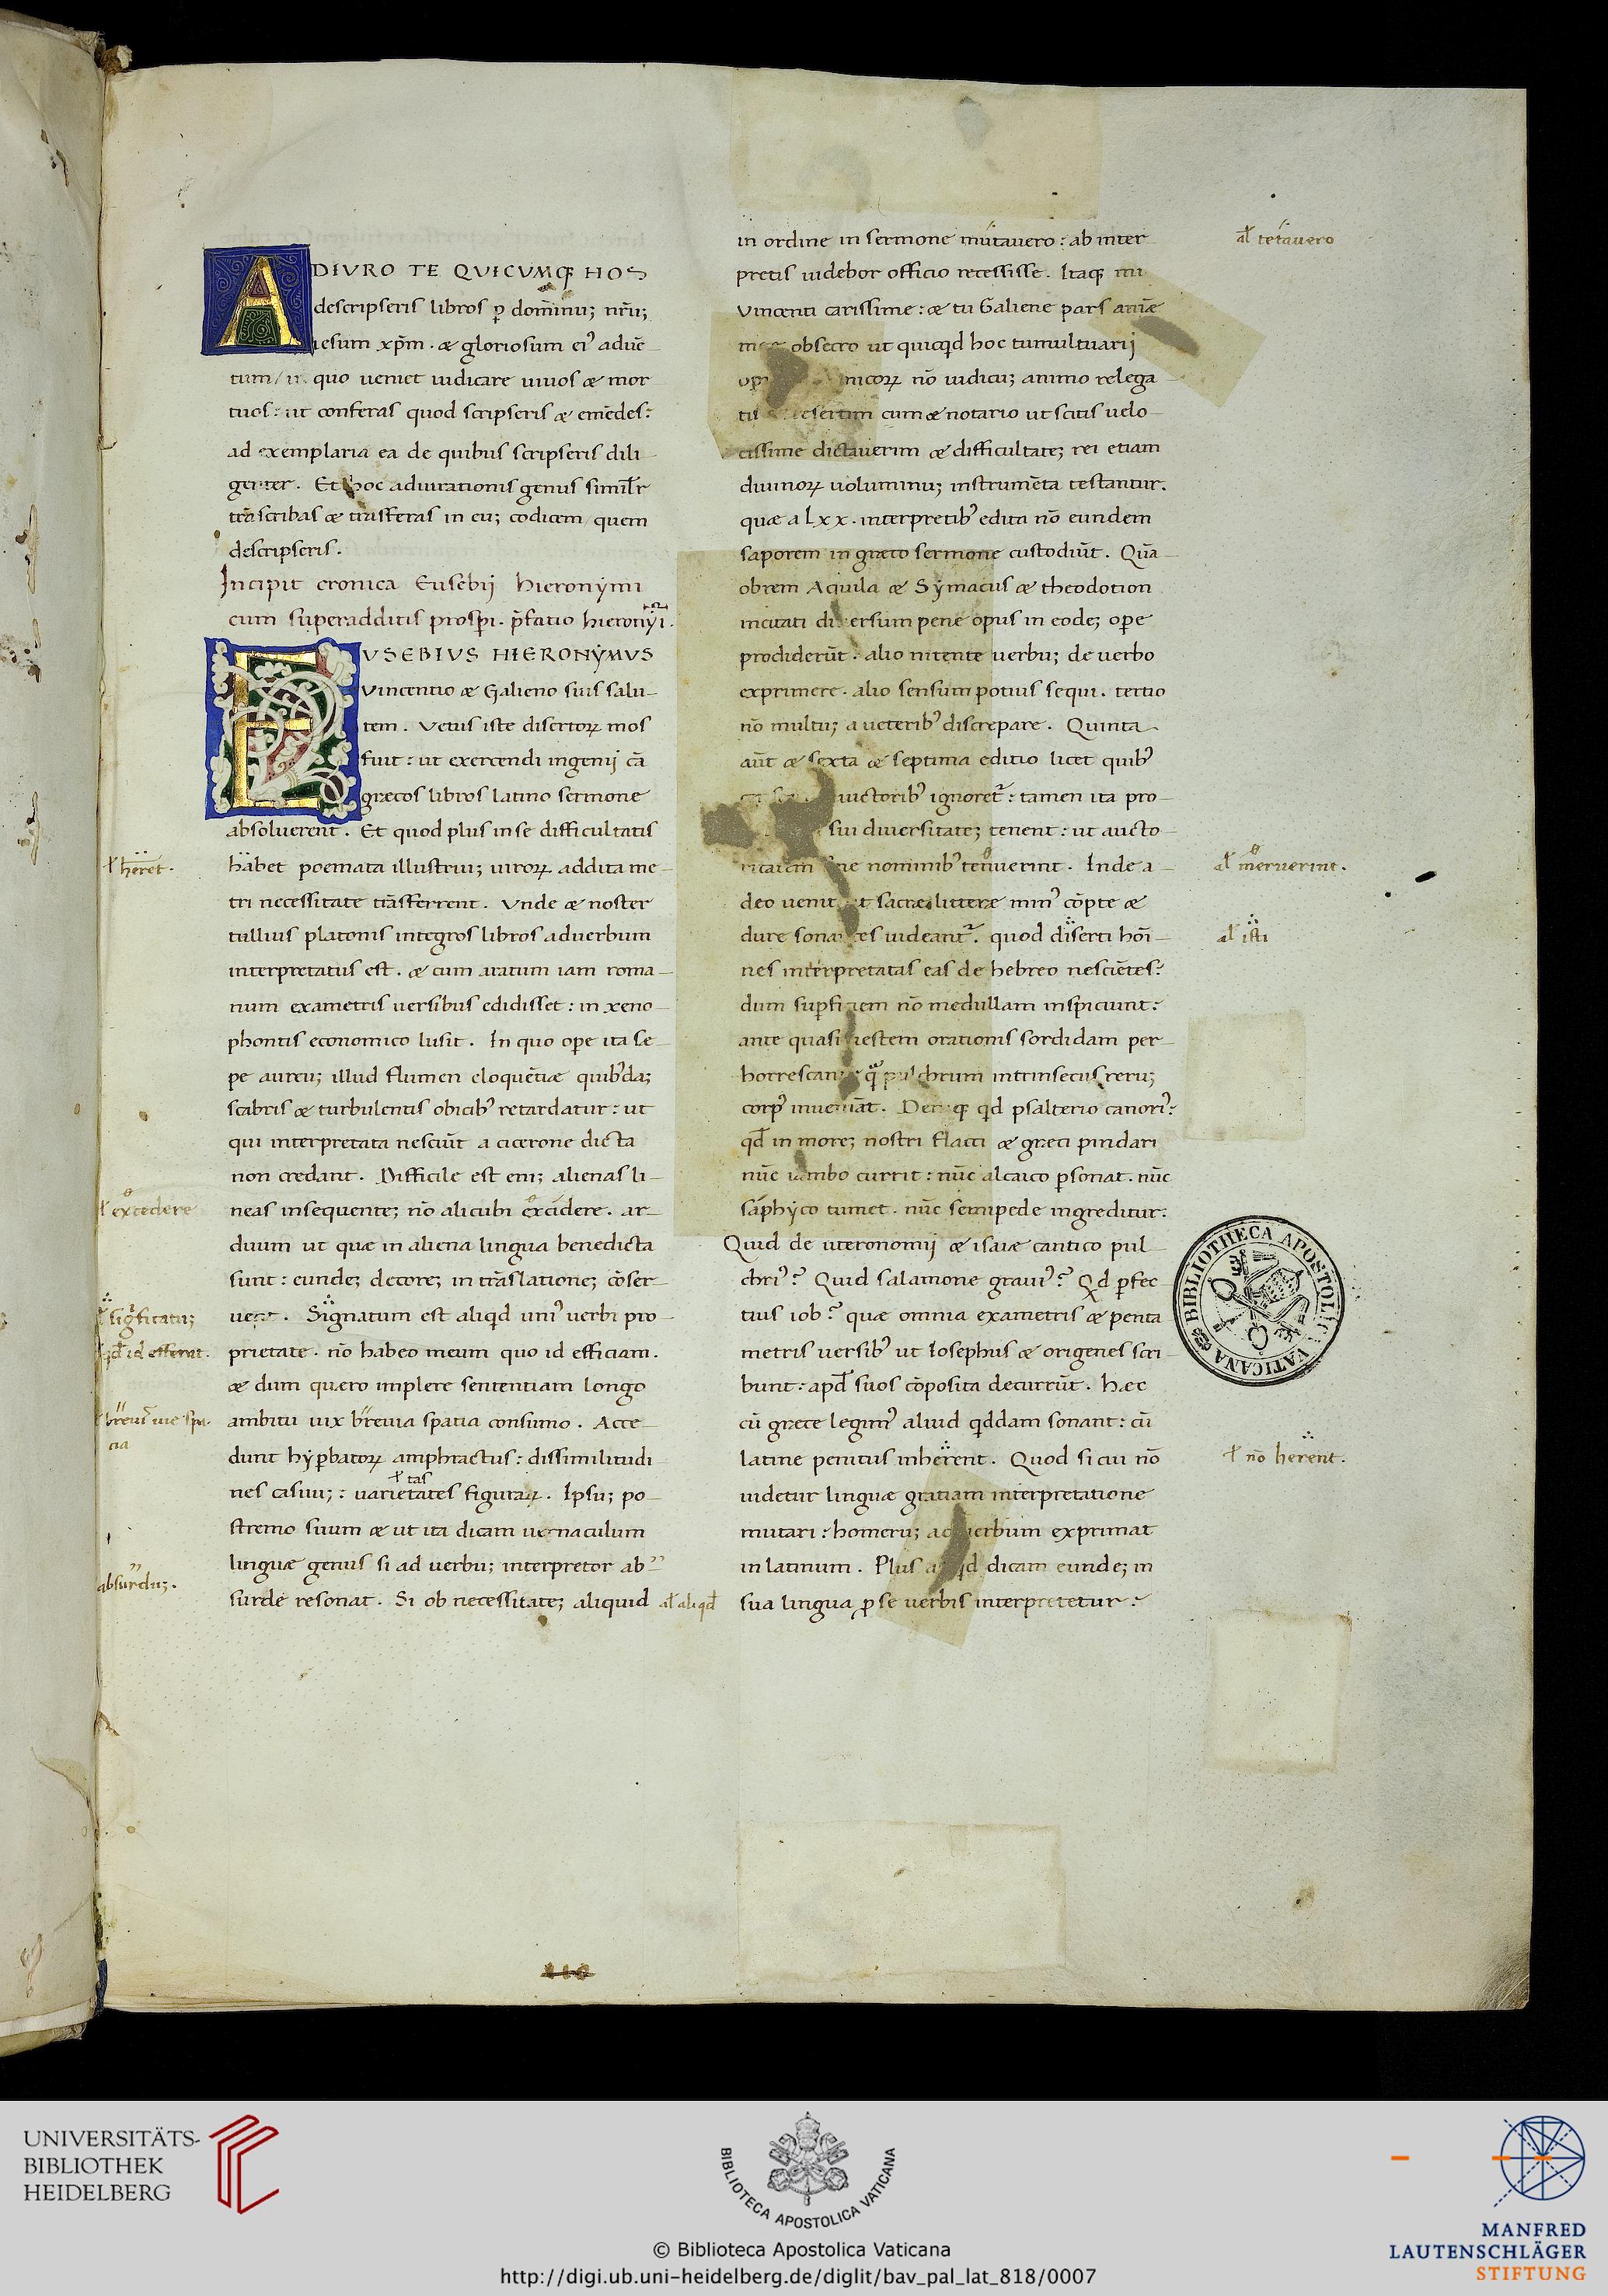 ADIVRO TE QVICVMQꝫ HOS
descripseris libros ꝑ dom̅inuꝫ nr̅uꝫ
iesum xp̅m . æ gloriosum eiꝰ aduē
tum / in quo ueniet iudicare uiuos æ mor
tuos : ut conferas quod scripseris æ emēdes :
ad exemplaria ea de quibus scripseris dili
genter . Et hoc adiurationis genus simil̅r
trāscribas æ trāsferas in euꝫ codicem / quem
descripseris .
Incipit cronica Eusebij hieronỳmi
cum superadditis prosp̱i . p̄fatio hieronỳi .
EVSEBIVS HIERONẎMVS
Vincentio æ Galieno suis salu–
tem . Vetus iste disertoꝝ mos
fuit : ut exercendi ingenij cā
grecos libros latino sermone
absoluerent . Et quod plus in se difficultatis
ł heret .
habet poemata illustriuꝫ uiroꝝ addita me–
tri necessitate trāsferrent . Vnde æ noster
tullius platonis integros libros aduerbum
interpretatus est . æ cum aratum iam roma–
num exametris uersibus edidisset : in xeno–
phontis economico lusit . In quo oꝑe ita se–
pe aureuꝫ illud flumen eloquētiæ quibꝰdaꝫ
scabris æ turbulentis obicibꝰ retardatur : ut
qui interpretata nesciūt a cicerone dicta
non credant . Difficile est eniꝫ alienas li–
ł excedere
neas insequenteꝫ nō alicubi excidere . ar–
duum ut quæ in aliena lingua benedicta
sunt : eundeꝫ decoreꝫ in trāslationeꝫ cōser–
ł significatuꝫ
uent . Signatum est aliqd uniꝰ uerbi pro–
ł qd̅ id efferat .
prietate . nō habeo meum quo id efficiam .
æ dum quæro implere sententiam longo
ł breuis uie spa
cia
ambitu uix breuia spatia consumo . Acce–
dunt hyꝑbatoꝝ amphractus : dissimilitudi
ł tas
nes casuuꝫ : uarietates figuraꝝ . Ipsuꝫ po–
stremo suum æ ut ita dicam uernaculum
linguæ genus si ad uerbuꝫ interpretor ab
absurduꝫ .
surde resonat . Si ob necessitateꝫ aliquid
al̅ aliqd̅
in ordine in sermone mutauero : ab inter–
al̅ tetauero
pretis uidebor officio recessisse . Itaqꝫ mi
Vincenti carissime : æ tu Galiene pars aniæ
obsecro ut quicqd hoc tumultuarij
nō uidicuꝫ animo relega
cum æ notario ut scitis uelo–
cissime dictauerim æ difficultateꝫ rei etiam
diuinoꝝ uoluminuꝫ instrumēta testantur .
quæ a lxx . interpretibꝰ edita nō eundem
saporem in græco sermone custodiūt . Quā–
obrem Aquila æ Sẏmacus æ theodotion
incitati diuersum pene opus in eodeꝫ oꝑe
prodiderūt : alio nitente uerbuꝫ de uerbo
exprimere . alio sensum potius sequi . tertio
nō multuꝫ a ueteribꝰ discrepare . Quinta
aūt æ sexta æ septima editio licet quibꝰ
auctoribꝰ ignoret᷑ : tamen ita pro–
sui diuersitateꝫ tenent : ut aucto–
nominibꝰ tenuerint . Inde a–
al̅ meruerint .
deo uenit ut sacræ litteræ minꝰ cōpte æ
dure sonantes uideant᷑ . quod diserti hoī–
al̅ isti
nes interpretatas eas de hebreo nesciētes :
dum suꝑficiem nō medullam inspiciunt :
ante quasi uestem orationis sordidam per–
horrescant qᷓ pulchrum intrinsecus reruꝫ
corpꝰ inueniāt . Deniqꝫ qd psalterio canoriꝰ :
qd̅ in moreꝫ nostri flacci æ greci pindari
nūc iambo currit : nūc alcaico ꝑsonat . nūc
sáphẏco tumet . nūc semipede ingreditur :
Quid de uteronomij æ isaiæ cantico pul–
chriꝰ ? Quid salamone grauiꝰ ? Qd ꝑfec
tius iob ? quæ omnia exametris æ penta
metris uersibꝰ ut Iosephus æ origenes scri–
bunt : apd̅ suos cōposita decurrūt . Hæc
cū græce legimꝰ aliud qddam sonant : cū
latine penitus inherent . Quod si cui nō
ł nō herent .
uidetur linguæ gratiam interpretatione
mutari : homeruꝫ ad uerbum exprimat
in latinum . Plus aliqd dicam eundeꝫ in
sua lingua ꝓse uerbis interpretetur :
BIBLIOTHECA APOSTOLICA VATICANA
110
UNIVERSITÄTS-
BIBLIOTHEK
HEIDELBERG
BIBLIOTECA APOSTOLICA VATICANA
© Biblioteca Apostolica Vaticana
http://digi.ub.uni-heidelberg.de/diglit/bav_pal_lat_818/0007
MANFRED
LAUTENSCHLÄGER
STIFTUNG